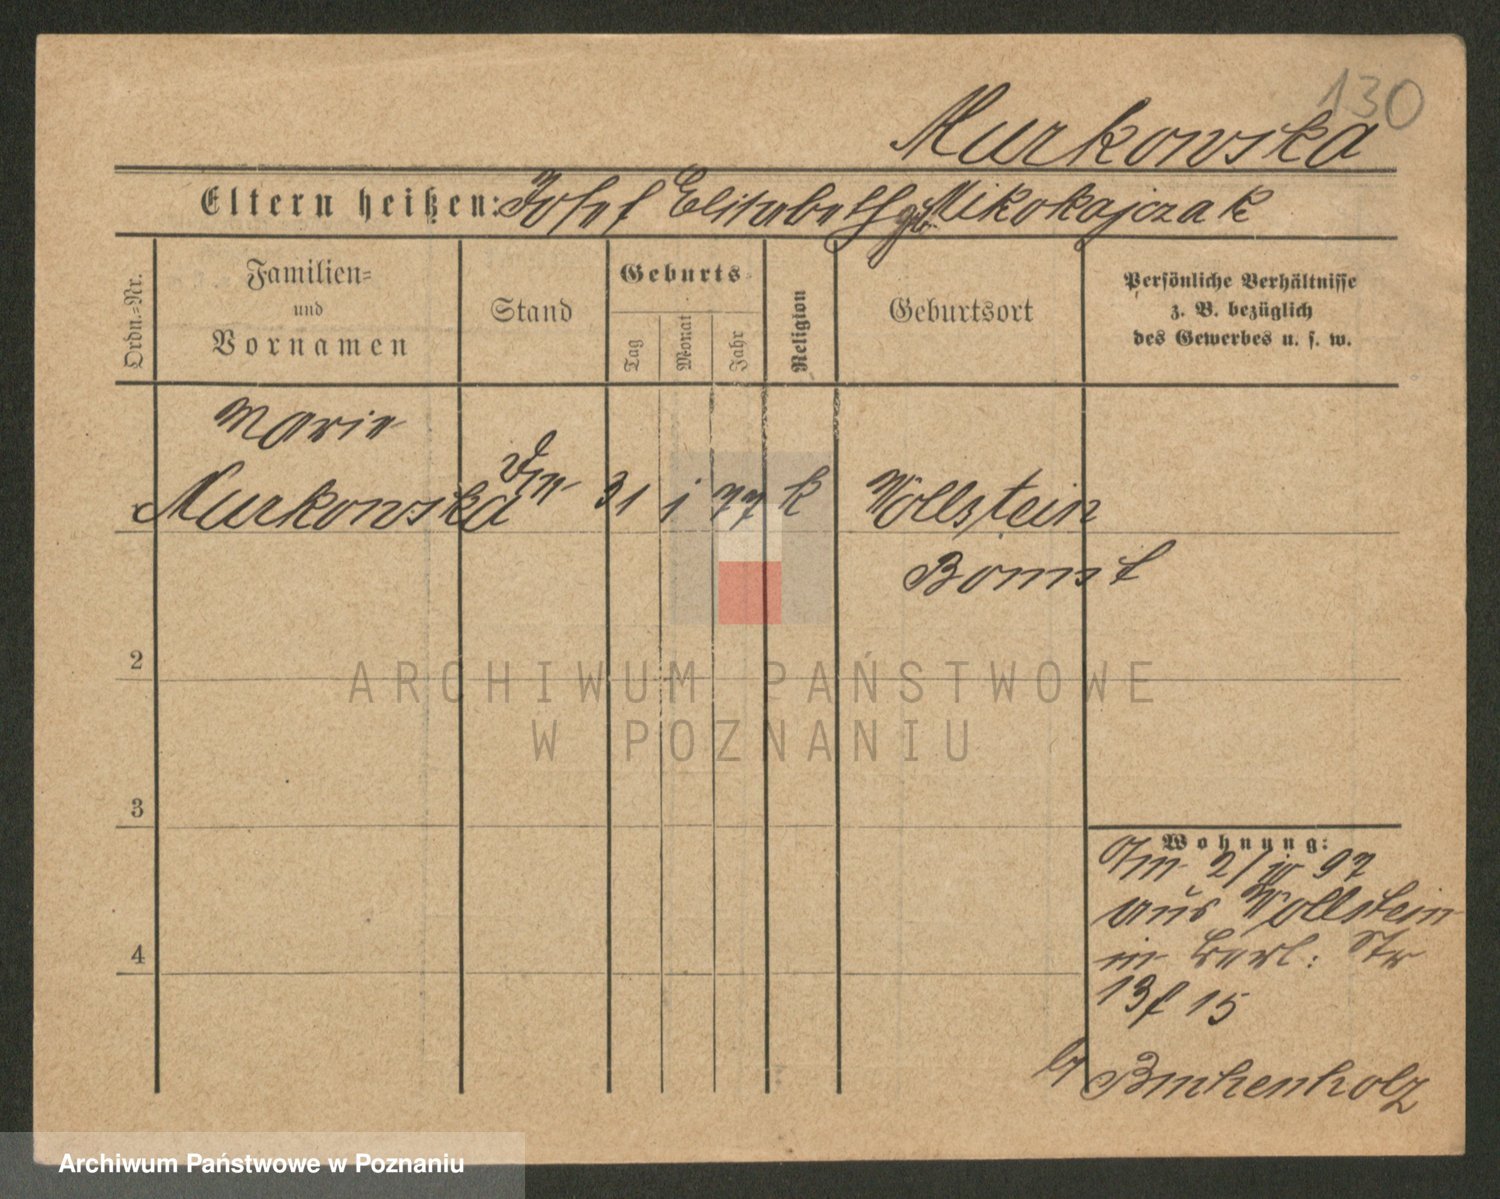 130
Murkowska
Eltern heißen: Josef Elisabeth geb Mikołajczak
Ordn.=Nr.
Familien=
und
Vornamen
Stand
Geburts
Tag
Monat
Jahr
Religion
Geburtsort
Persönliche Verhältnisse
z. B. bezüglich
des Gewerbes u. s. w.
Marie
Murkowska 31 1 77 k Wollstein
Bomst
2
3
4
ARCHIWUM PAŃSTWOWE
W POZNANIU
Wohnung:
Am 2/IV 97
aus Wollstein
in Berl: Str
13 f 15
b/ Buchenholz
Archiwum Państwowe w Poznaniu